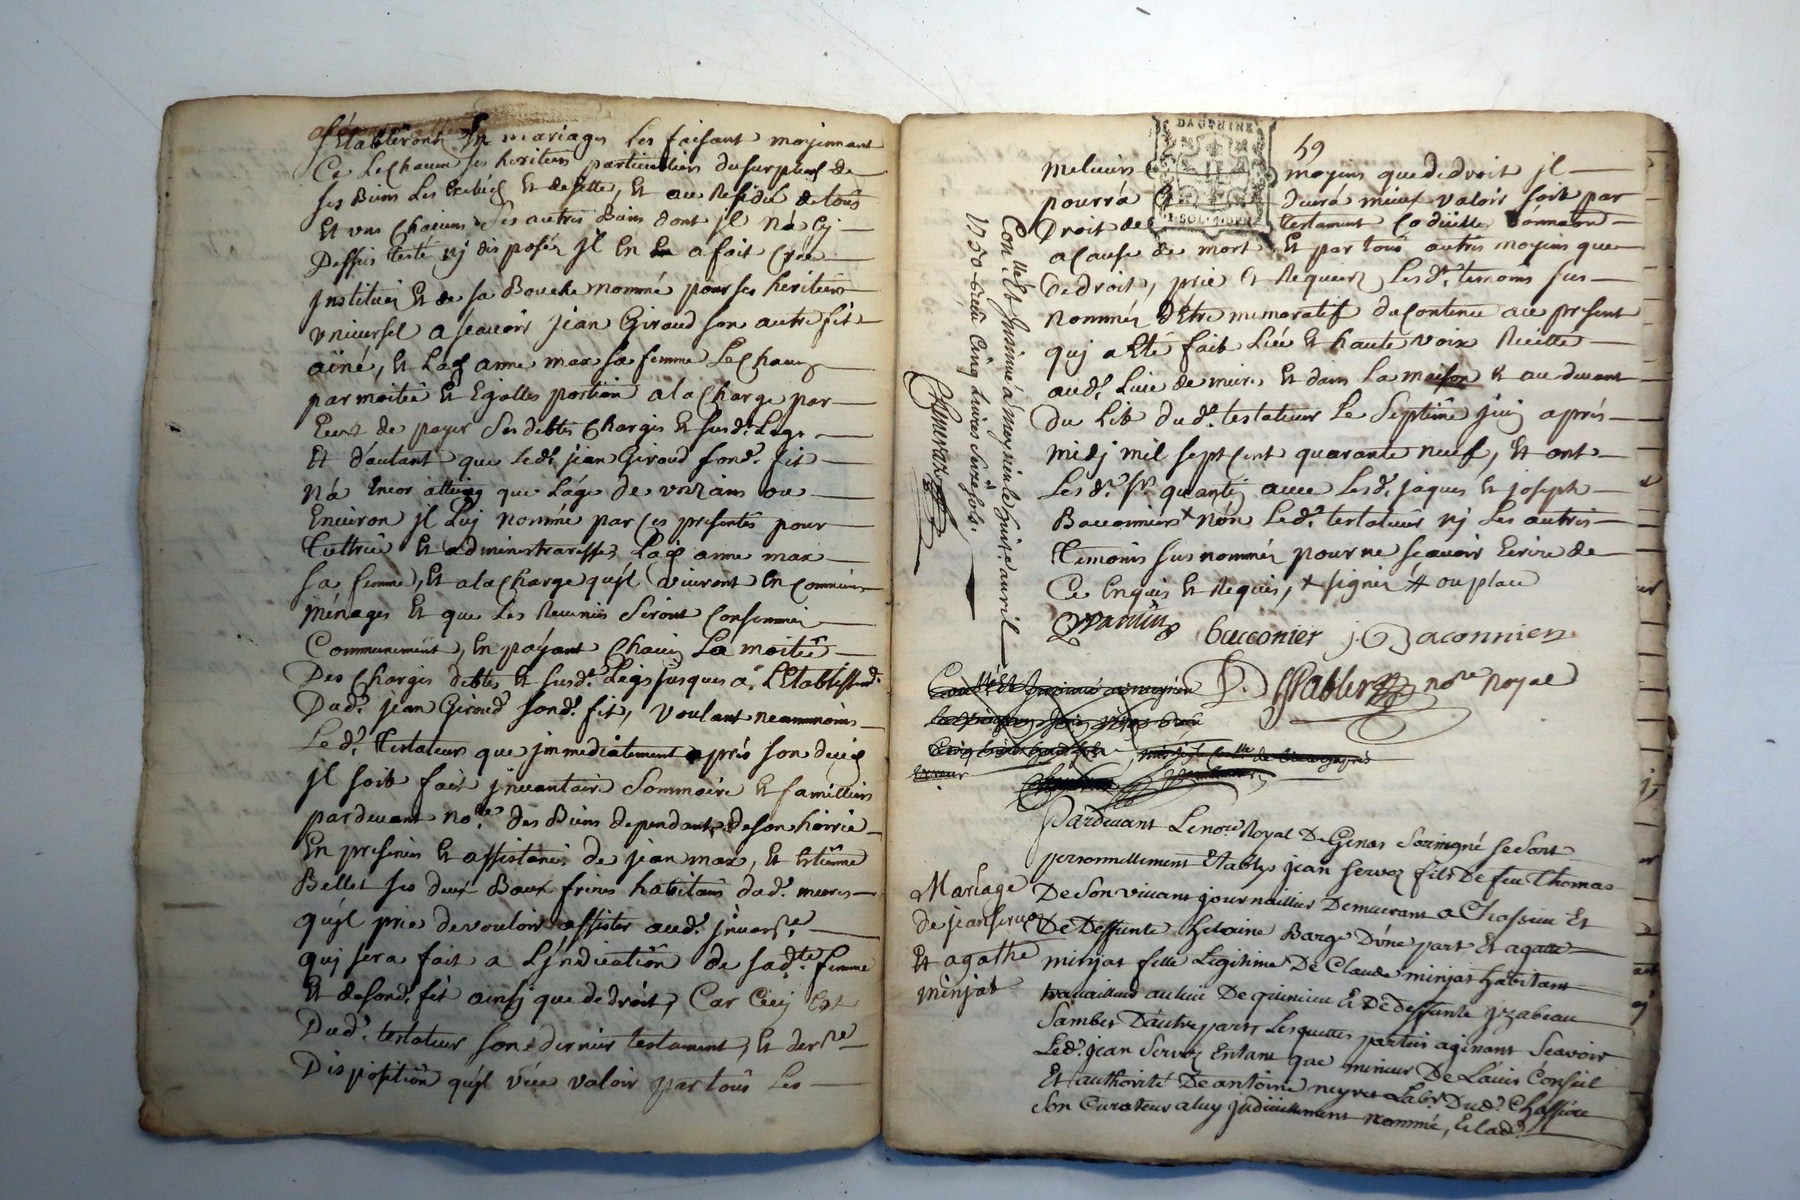 s'Etabliront En mariages les faisant moyennant
Ce Lechacun ses heritiers particuliers du surplus de
ses Biens Les Et de, Et au Residu de tous
Et vns chacuns ses autres Biens dont jl Na Cj
Dessus testé nj disposéz jl En a fait Crée
jnstitués Et de sa Bouche nommé pour ses heritiers
vniversel a scavoir jean Giraud son autre fit
ainé, Et anne max sa femme
par moitié Et Egalles portion a la Charge par
Eux de payer Ses debtes Charges Et susd.t Legs
Et d'autant que led.t jean Giraud sond.t fit
Na Encor que L'age de vnze ans ou
Environ jl Luj nomme par Ces presentes pour
Tuttrice Et administraresse, anne max
sa femme, Et a la Charge qu'jl vivront En commun
ménages Et que Les Revenus Seront Consommés
Communement, En payant Chacun La moitié
Des Charges debtes Et susd.t Legs jusques a L'Etablissem.t
Dud.t jean Giroud sond.t fit, voulant neammoins
Le d.t Testateur que jmmediatement aprés son decés
jl soit fait jnvantaire Sommaire Et familliers
pardevant no.re des Biens dependants de son hoirie
En presence Et assistance de jean max, Et Estienne
Bellet ses deux Baux freres habitans dud.t meures
qu'jl prie de vouloir assister aud.t jnvant.re
quj sera fait a L'jndication de sad.te femme
Et de sond.t fit ainsj que de droit, Car Cecy Est
Dud.t testateur son dernier testament, Et der.re
Disposition qu'jl vüee valoir par tous Les
DAUPHINE
59
melieurs moyens que de droit jl
pourrá duirá mieux valoir soit par
Droit de testament Codicille donnaon
a cause de mort, Et par tous autres moyens que
de droit, prie Et Requerz Les d.t temoins sus
nommés D'être memoratif du contenu au present
quj a Eté fait Lüe Et haute voix Recitté
aud.t Lieu de mure Et dans La maison Et au devant
Du Lit dud.t testateur Le Septième juin aprés
midj mil sept cent quarante neuf, Et ont
Les d.t Sr quantin avec Les d.t jaques Et joseph
Bacconniers non Led.t testateur nj Les autres
Temoins sus nommés pour ne scavoir Ecrire de
Ce Enquis Et Requis, signés ou place
Con.llé Et jnsinué a meyzieu le huit d'avril
1750 Receu Cinq Livres Seize sols.
quantin bacconier j. Baconnier
no.re Royal
Erreur
Pardevant Le no.re Royal De Genas Soussigné se sont
personnellement Etablys jean Servoz fils De feu Thomas
De Son vivant journaillier Demeurant a Chassieu Et
De Deffunte helaine Barge D'une part, Et agatte
minjat fille Legitime De Claude minjat habitant
travailleur au lieu De Et De deffunte jzabeau
Sambet D'autre part, Lesquelles parties agissant Scavoir
Led.t jean Servoz Entant que mineur De L'avis Conseil
Et authorité De antoine neyret Lab.r Dud.t Chassieu
Son Curateur a luy judiciellement nommé, Et lad.te
Mariage
de jean Servoz
Et agathe
minjat